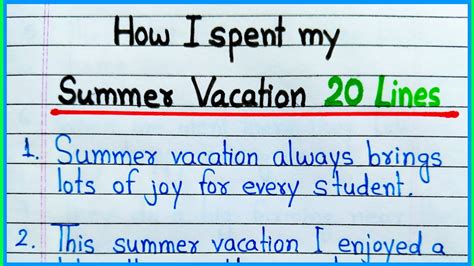 How I spent my
Summer Vacation 20 Lines
1. Summer vacation always brings
lots of joy for every student.
2. This summer vacation I enjoyed a